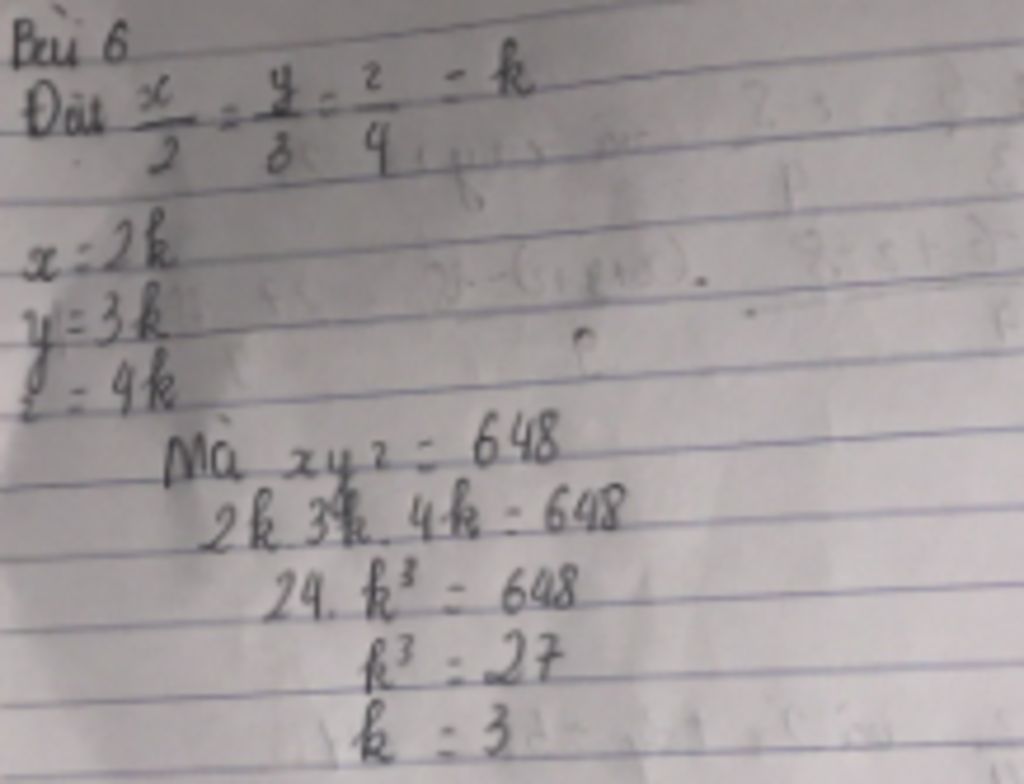 Bài 6
Đặt x/2 = y/3 = z/4 = k
x = 2k
y = 3k
z = 4k
Mà xyz = 648
2k 3k. 4k = 648
24. k³ = 648
k³ = 27
k = 3